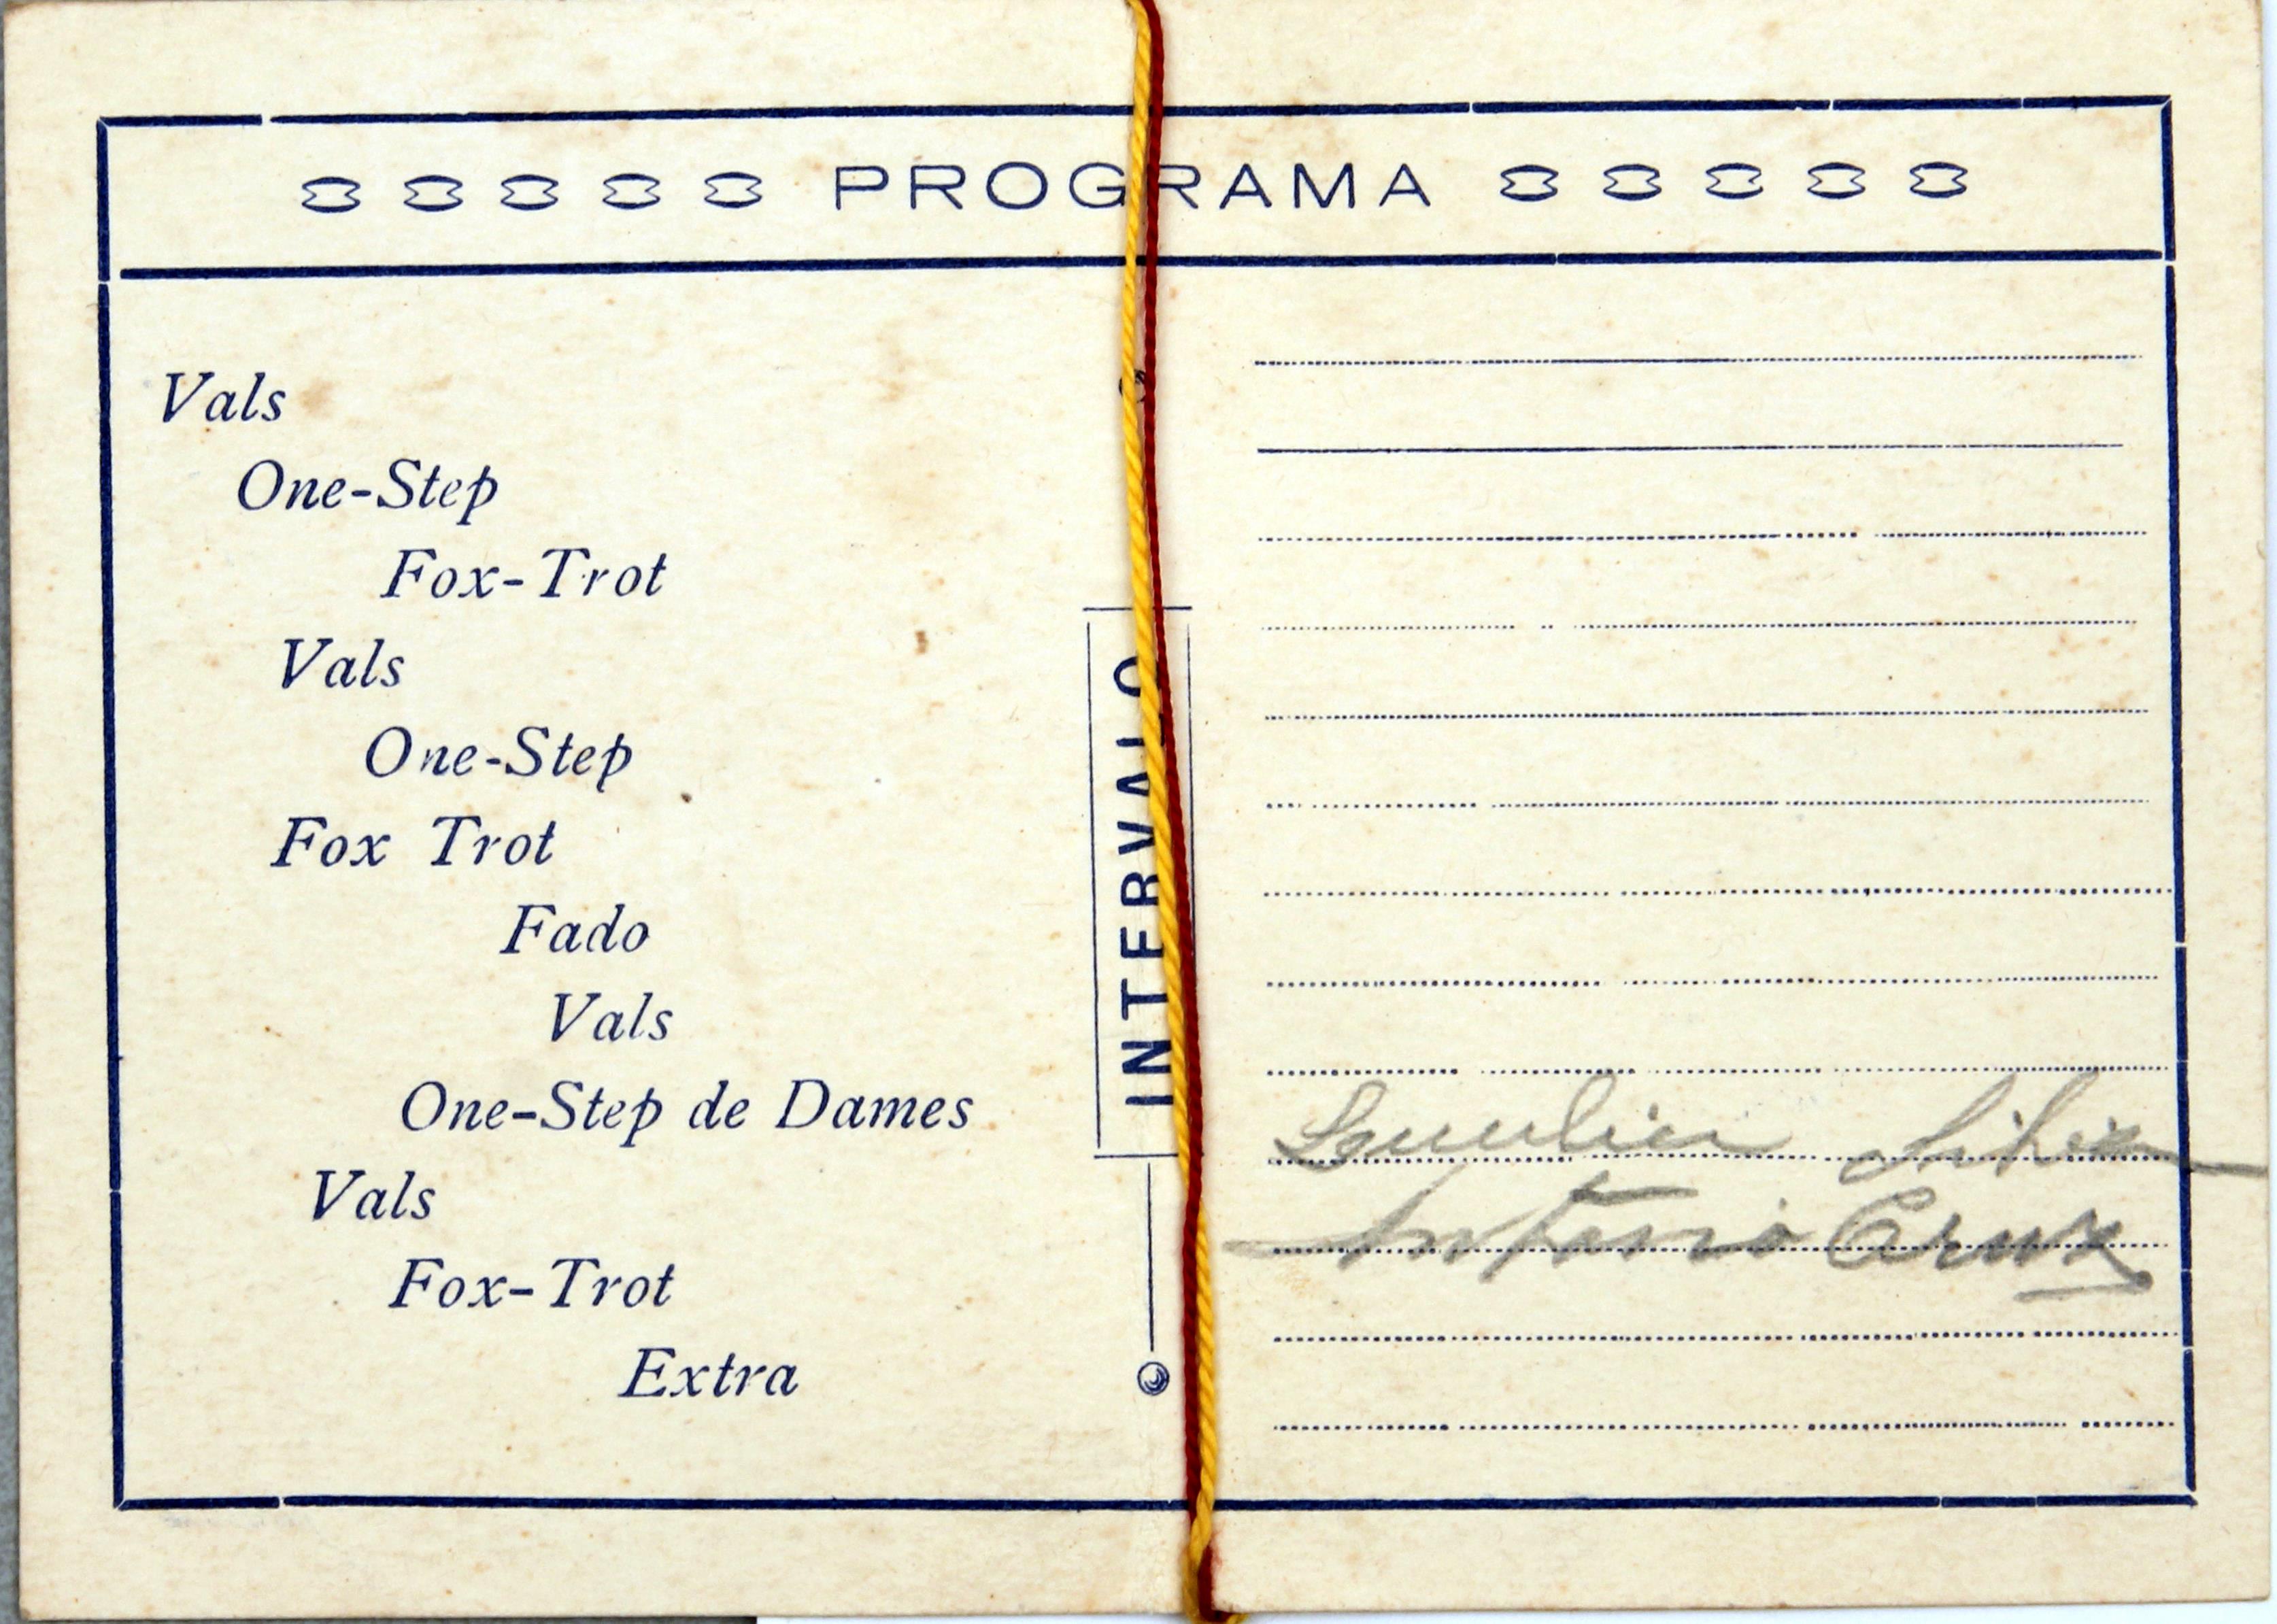 PROGRAMA
Vals
One-Step
Fox-Trot
Vals
One-Step
Fox Trot
Fado
Vals
One-Step de Dames
Vals
Fox-Trot
Extra
INTERVALO
Antonio Cruz